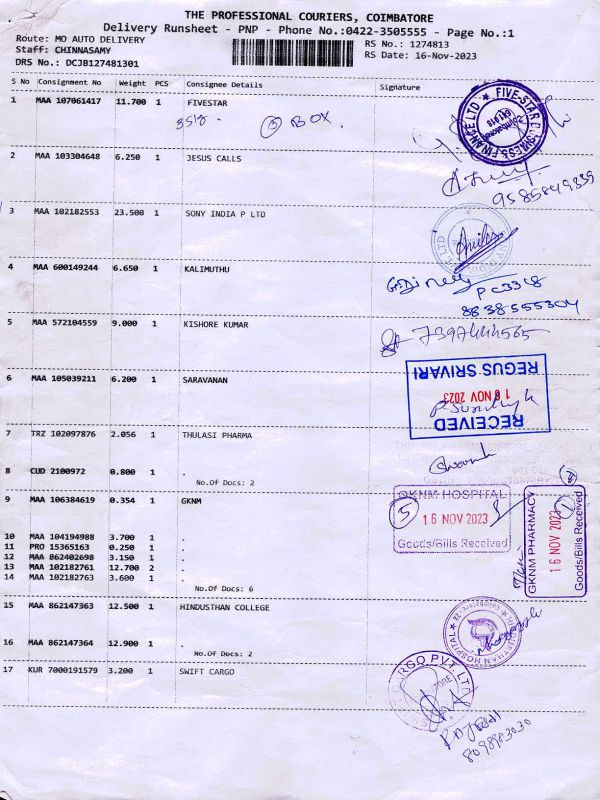 THE PROFESSIONAL COURIERS, COIMBATORE
Delivery Runsheet - PNP - Phone No.:0422-3505555 - Page No.:1
Route: MO AUTO DELIVERY
RS No.: 1274813
Staff: CHINNASAMY
RS Date: 16-Nov-2023
DRS No.: DCJB127481301
S No Consignment No Weight PCS Consignee Details Signature
1 MAA 107061417 11.700 1 FIVESTAR
BOX
FIVE-STAR BUSINESS FINANCE LTD
2 MAA 103304648 6.250 1 JESUS CALLS
9585849339
3 MAA 102182553 23.500 1 SONY INDIA P LTD
4 MAA 600149244 6.650 1 KALIMUTHU
PC3318
8838555304
5 MAA 572104559 9.000 1 KISHORE KUMAR
7397444565
6 MAA 105039211 6.200 1 SARAVANAN
REGUS SRIVARI
16 NOV 2023
RECEIVED
7 TRZ 102097876 2.056 1 THULASI PHARMA
8 CUD 2100972 0.800 1 .
No.Of Docs: 2
9 MAA 106384619 0.354 1 GKNM
GKNM HOSPITAL
5
16 NOV 2023
Goods/Bills Received
GKNM PHARMACY
1
16 NOV 2023
Goods/Bills Received
10 MAA 104194988 3.700 1 .
11 PRO 15365163 0.250 1 .
12 MAA 862402698 3.150 1 .
13 MAA 102182761 12.700 2 .
14 MAA 102182763 3.600 1 .
No.Of Docs: 6
15 MAA 862147363 12.500 1 HINDUSTHAN COLLEGE
HINDUSTHAN HOSPITAL
16 MAA 862147364 12.900 1 .
No.Of Docs: 2
17 KUR 7000191579 3.200 1 SWIFT CARGO
CARGO PVT LTD
8098983030